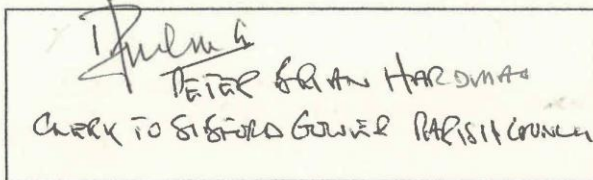 PETER BRIAN HARDMAN
CLERK TO SIBFORD GOWER PARISH COUNCIL